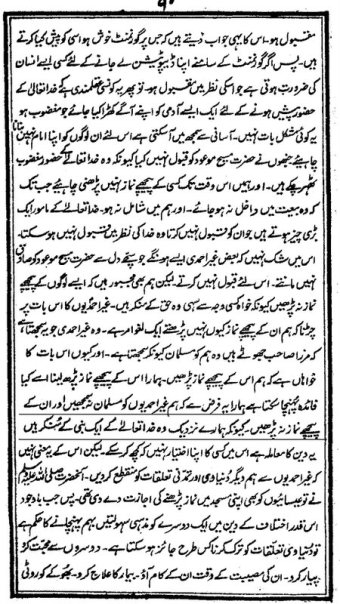 ۹۰
مقبول ہو۔ اس کا یہی جواب دیتے ہیں کہ جس پر گورنمنٹ خوش ہو اسی کو پیش کیا کرتے
ہیں۔ پس اگر گورنمنٹ کے سامنے اپنا ڈیپوٹیشن لے جانے کے لئے کسی ایسے انسان
کی ضرورت ہوتی ہے جو اسکی نظر میں مقبول ہو۔ تو پھر یہ کونسی عقلمندی ہے کہ خدا تعالیٰ کے
حضور پیش ہونے کے لئے ایک ایسے آدمی کو اپنے آگے کھڑا کیا جائے جو مغضوب ہو
یہ کوئی مشکل بات نہیں۔ آسانی سے سمجھ میں آسکتی ہے اس لئے ان لوگوں کو اپنا امام نہیں بنانا
چاہئیے جنھوں نے حضرت مسیح موعود کو قبول نہیں کیا کیونکہ وہ خدا تعالیٰ کے حضور مغضوب
ٹھہر چکے ہیں۔ اور ہمیں اس وقت تک کسی کے پیچھے نماز نہیں پڑھنی چاہئیے جب تک
کہ وہ بیعت میں داخل نہ ہو جائے۔ اور ہم میں شامل نہ ہو۔ خدا تعالےٰ کے مامور ایک
بڑی چیز ہوتے ہیں جو ان کو قبول نہیں کرتا وہ خدا کی نظر میں مقبول نہیں ہو سکتا۔
اس میں شک نہیں کہ بعض غیر احمدی ایسے ہونگے جو سچے دل سے حضرت مسیح موعود کو صادق
نہیں مانتے۔ اس لئے قبول نہیں کرتے۔ لیکن ہم بھی مجبور ہیں کہ ایسے لوگوں کے پیچھے
نماز نہ پڑھیں کیونکہ خواہ کسی وجہ سے سہی وہ حق کے منکر ہیں۔ غیر احمدیوں کا اس بات پر
چڑنا کہ ہم ان کے پیچھے نماز کیوں نہیں پڑھتے ایک لغو امر ہے۔ وہ غیر احمدی جو یہ سمجھتا ہے
کہ مرزا صاحب جھوٹے ہیں وہ ہم کو مسلمان کیونکر سمجھتا ہے۔ اور کیوں اس بات کا
خواہاں ہے کہ ہم اس کے پیچھے نماز پڑھیں۔ ہمارا اس کے پیچھے نماز پڑھ لینا اسے کیا
فائدہ پہنچا سکتا ہے ہمارا یہ فرض ہے کہ ہم غیر احمدیوں کو مسلمان نہ سمجھیں اور ان کے
پیچھے نماز نہ پڑھیں۔ کیونکہ ہمارے نزدیک وہ خدا تعالےٰ کے ایک نبی کے منکر ہیں
یہ دین کا معاملہ ہے اس میں کسی کا اپنا اختیار نہیں کہ کچھ کر سکے۔ لیکن اس کے یہ معنی نہیں
کہ غیر احمدیوں سے ہم دیگر دنیاوی اور تمدنی تعلقات کو منقطع کر دیں۔ آنحضرت صلی اللہ علیہ وسلم
نے تو عیسائیوں کو بھی اپنی مسجد میں نماز پڑھنے کی اجازت دے دی تھی۔ پس جب باوجود
اس قدر اختلاف کے دین میں ایک دوسرے کو مذہبی سہولتیں بہم پہنچانے کا حکم ہے
تو دنیاوی تعلقات کو ترک کرنا کس طرح جائز ہو سکتا ہے۔ دوسروں سے محبت کرو
پیار کرو۔ ان کی مصیبت کے وقت ان کے کام آؤ۔ بیمار کا علاج کرو۔ بھوکے کو روٹی